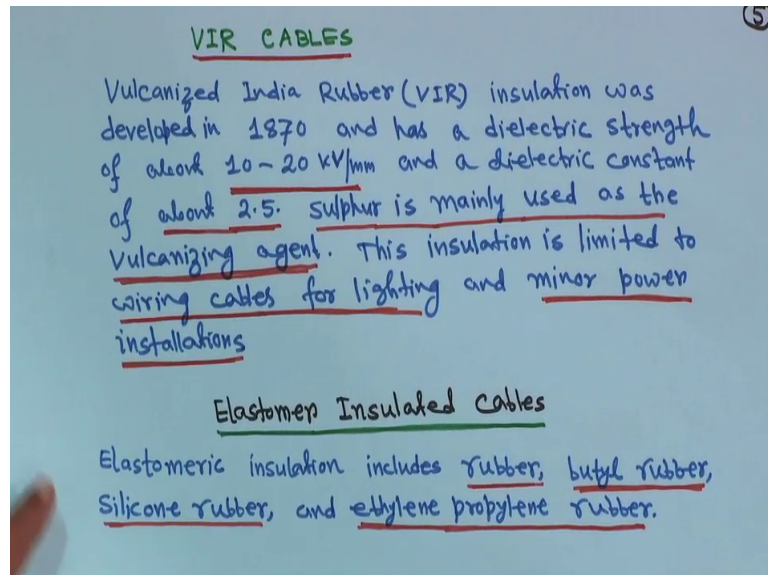 5
VIR CABLES
Vulcanized India Rubber (VIR) insulation was
developed in 1870 and has a dielectric strength
of about 10-20 kV/mm and a dielectric constant
of about 2.5. sulphur is mainly used as the
vulcanizing agent. This insulation is limited to
wiring cables for lighting and minor power
installations
Elastomer Insulated Cables
Elastomeric insulation includes rubber, butyl rubber,
Silicone rubber, and ethylene propylene rubber.